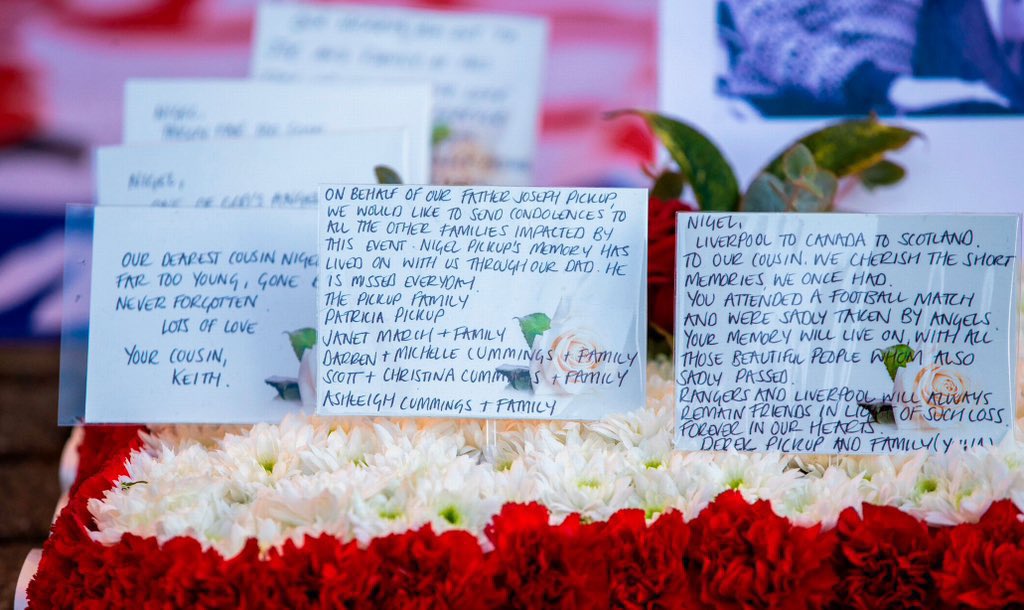 NIGEL,
NIGEL,
ONE OF GOD'S ANGELS
OUR DEAREST COUSIN NIGEL
FAR TOO YOUNG, GONE
NEVER FORGOTTEN
LOTS OF LOVE
YOUR COUSIN,
KEITH.
ON BEHALF OF OUR FATHER JOSEPH PICKUP,
WE WOULD LIKE TO SEND CONDOLENCES TO
ALL THE OTHER FAMILIES IMPACTED BY
THIS EVENT. NIGEL PICKUP'S MEMORY HAS
LIVED ON WITH US THROUGH OUR DAD. HE
IS MISSED EVERYDAY.
THE PICKUP FAMILY
PATRICIA PICKUP
JANET MARCH + FAMILY
DARREN + MICHELLE CUMMINGS + FAMILY
SCOTT + CHRISTINA CUMMINGS + FAMILY
ASHLEIGH CUMMINGS + FAMILY
NIGEL,
LIVERPOOL TO CANADA TO SCOTLAND.
TO OUR COUSIN. WE CHERISH THE SHORT
MEMORIES, WE ONCE HAD.
YOU ATTENDED A FOOTBALL MATCH
AND WERE SADLY TAKEN BY ANGELS.
YOUR MEMORY WILL LIVE ON WITH ALL
THOSE BEAUTIFUL PEOPLE WHOM ALSO
SADLY PASSED.
RANGERS AND LIVERPOOL WILL ALWAYS
REMAIN FRIENDS IN OF SUCH LOSS.
FOREVER IN OUR HEARTS.
DEREK PICKUP AND FAMILY